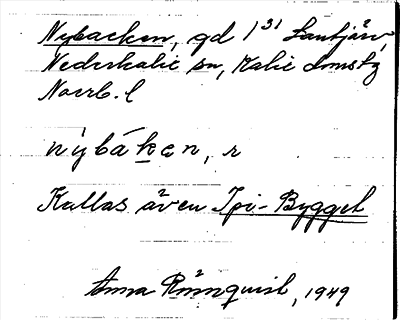 Nybacken, gd 1³¹ Lantjärv,
Nederkalix sn, Kalix domsby
Norrb. l
nỳbákₑn, r
Kallas även Tpi-Bygget
Anna Rönnqvist, 1949